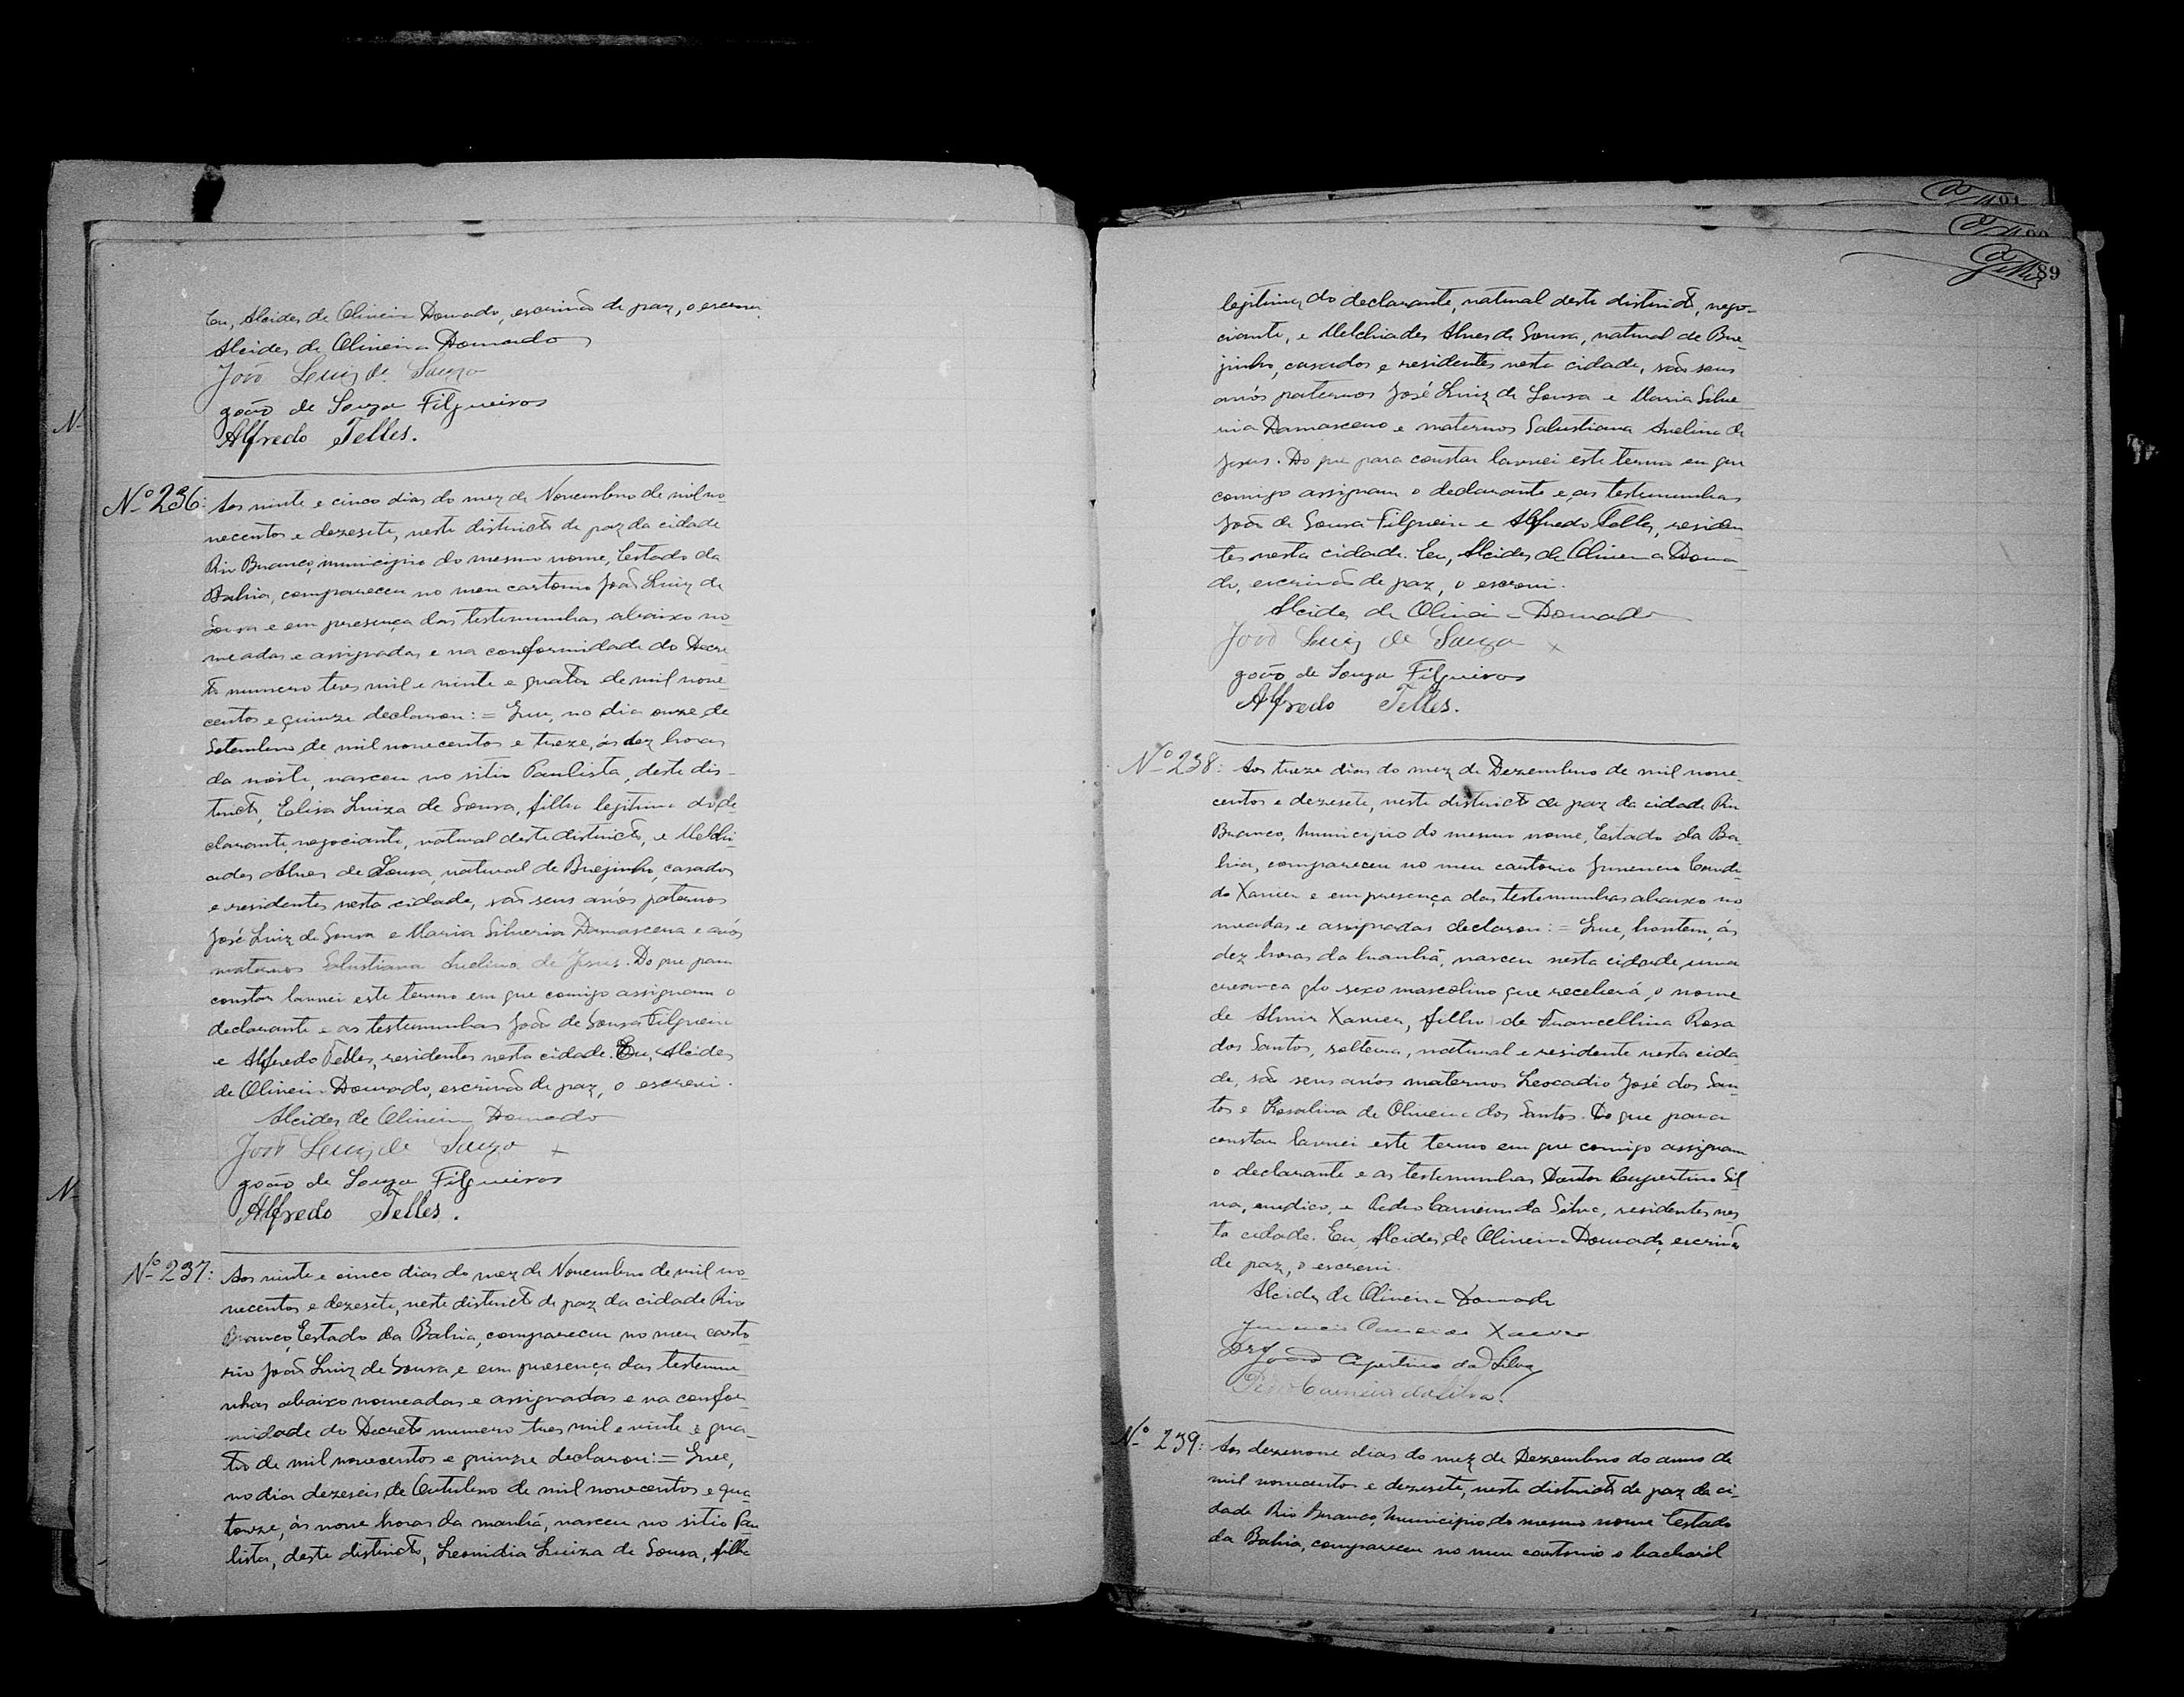 Eu, Alcides de Oliveira Dourado, escrivão de paz, o escrevi.
Alcides de Oliveira Dourado
João Luiz de Souza
João de Souza Filgueiras
Alfredo Telles.
Nº 236: Aos vinte e cinco dias do mez de Novembro de mil no-
vecentos e dezesete, neste districto de paz da cidade
Rio Branco, municipio do mesmo nome, Estado da
Bahia, compareceu no meu cartorio João Luiz de
Sousa e em presença das testemunhas abaixo no-
meadas e assignadas e na conformidade do Decre-
to numero tres mil e vinte e quatro de mil nove-
centos e quinze declarou: = Que, no dia onze de
Setembro de mil novecentos e treze, ás dez horas
da noite, nasceu no sitio Paulista, deste dis-
tricto, Elisa Luiza de Sousa, filha legitima do de-
clarante, negociante, natural deste districto, e Melchi-
ades Alves de Sousa, natural de Brejinho, casados
e residentes nesta cidade, são seus avós paternos
José Luiz de Sousa e Maria Silveria Damascena e avós
maternos Salustiana Avelina de Jesus. Do que para
constar lavrei este termo em que comigo assignam o
declarante e as testemunhas João de Sousa Filgueira
e Alfredo Telles, residentes nesta cidade. Eu, Alcides
de Oliveira Dourado, escrivão de paz, o escrevi.
Alcides de Oliveira Dourado
João Luiz de Souza +
João de Souza Filgueiras
Alfredo Telles.
Nº 237: Aos vinte e cinco dias do mez de Novembro de mil no-
vecentos e dezesete, neste districto de paz da cidade Rio
Branco, Estado da Bahia, compareceu no meu carto-
rio João Luiz de Sousa, e em presença das testemu-
nhas abaixo nomeadas e assignadas e na confor-
midade do Decreto numero tres mil e vinte e qua-
tro de mil novecentos e quinze declarou: = Que,
no dia dezeseis de Outubro de mil novecentos e qua-
torze, ás nove horas da manhã, nasceu no sitio Pau-
lista, deste districto, Leonidia Luiza de Sousa, filha
89
legitima do declarante, natural deste districto, nego-
ciante, e Melchiades Alves de Sousa, natural de Bre-
jinho, casados e residentes nesta cidade, são seus
avós paternos José Luiz de Sousa e Maria Silve-
ria Damasceno e maternos Salustiana Avelina de
Jesus. Do que para constar lavrei este termo em que
comigo assignam o declarante e as testemunhas
João de Sousa Filgueira e Alfredo Telles, residen-
tes nesta cidade. Eu, Alcides de Oliveira Doura-
do, escrivão de paz, o escrevi.
Alcides de Oliveira Dourado
João Luiz de Souza x
João de Souza Filgueiras
Alfredo Telles.
Nº 238: Aos treze dias do mez de Dezembro de mil nove-
centos e dezesete, neste districto de paz da cidade Rio
Branco, Municipio do mesmo nome, Estado da Ba-
hia, compareceu no meu cartorio Juvencio Candi-
do Xavier e em presença das testemunhas abaixo no-
meadas e assignadas declarou: = Que, hontem, ás
dez horas da manhã, nasceu nesta cidade, uma
creança do sexo mascolino que receberá o nome
de Almir Xavier, filho de Francellina Rosa
dos Santos, solteira, natural e residente nesta cida-
de, são seus avós maternos Leocadio José dos San-
tos e Rosalina de Oliveira dos Santos. Do que para
constar lavrei este termo em que comigo assignam
o declarante e as testemunhas Doutor Cupertino Sil-
va, medico, e Pedro Carneiro da Silva, residentes nes-
ta cidade. Eu, Alcides de Oliveira Dourado, escrivão
de paz, o escrevi.
Alcides de Oliveira Dourado
Juvencio Xavier
Dr. João Cupertino da Silva
Pedro Carneiro da Silva.
Nº 239: Aos dezenove dias do mez de Dezembro do anno de
mil novecentos e dezesete, neste districto de paz da ci-
dade Rio Branco, Municipio do mesmo nome Estado
da Bahia, compareceu no meu cartorio o bacharel